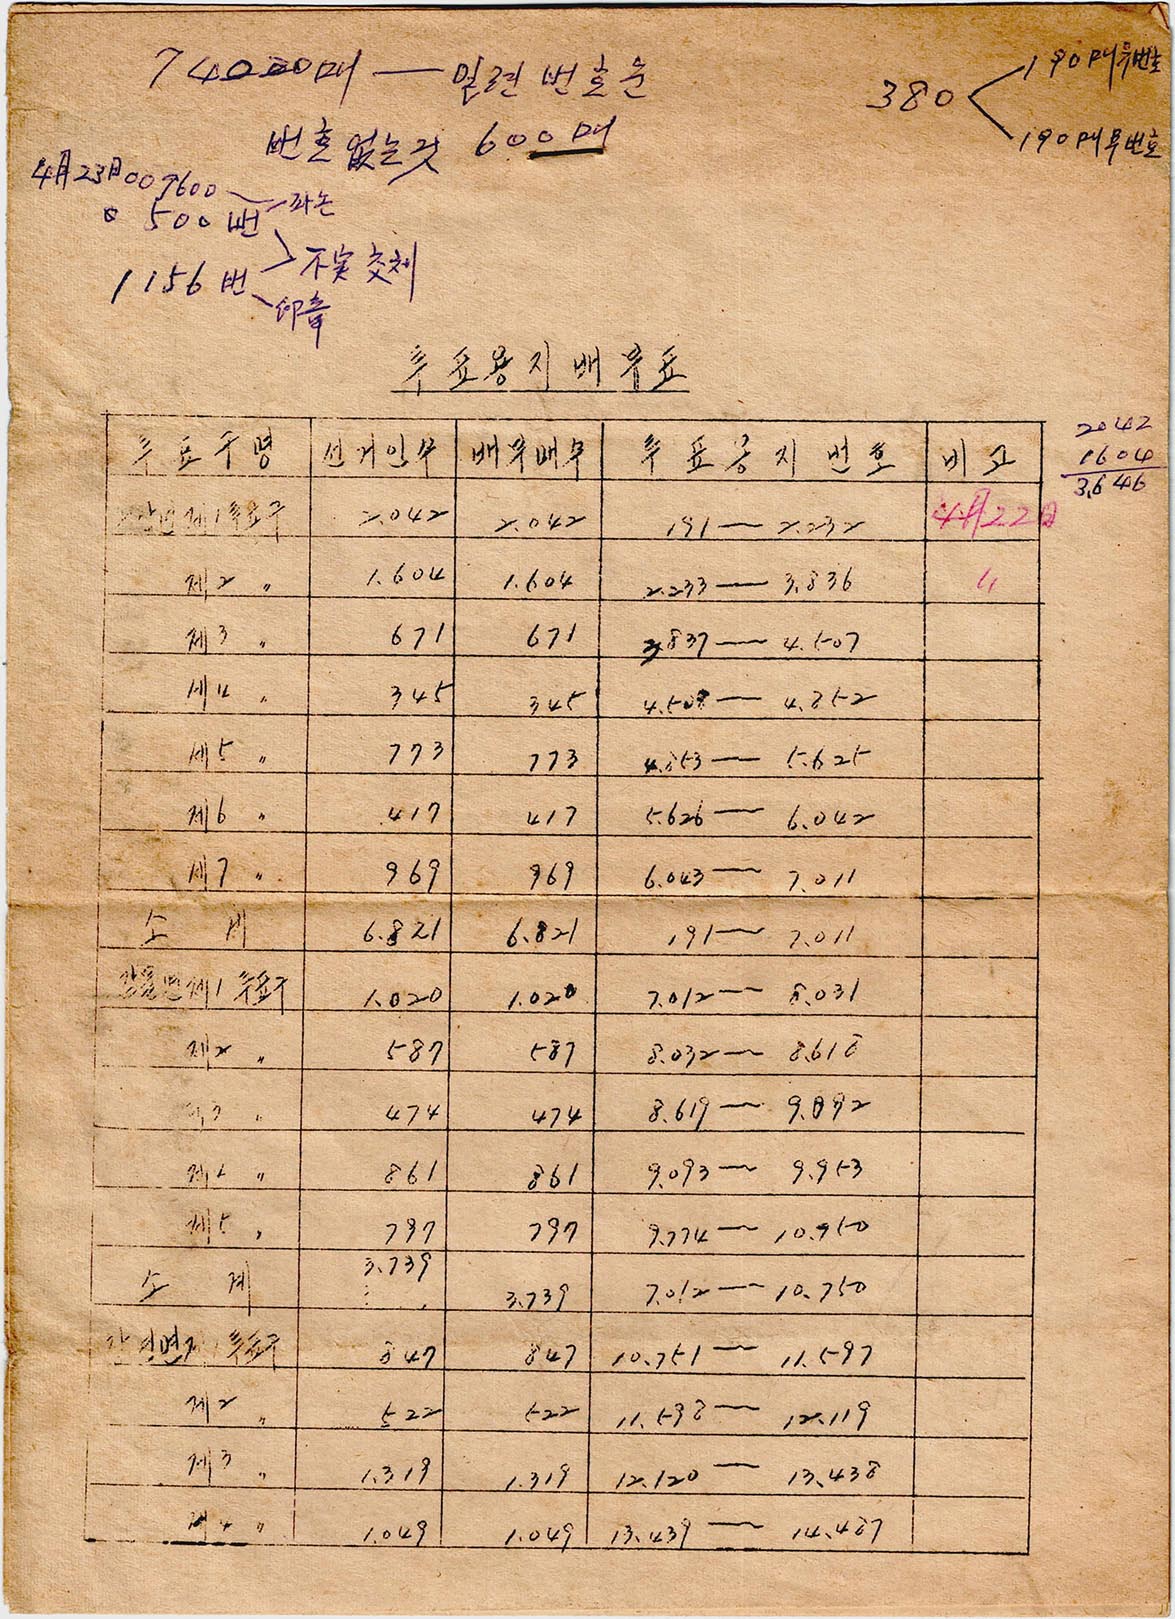 74000매 — 일련 번호순
380 < 190매 유번호
190매 무번호
번호 없는것 600매
4月23日 007600
500번 파손
1156번 不実 交체
투표용지배부표
2042
1604
3,646
투표구명 선거인수 배부매수 투표용지번호 비고
제1투표구 2.042 2.042 191 — 2.232 4月22日
제2 〃 1.604 1.604 2.233 — 3.836 〃
제3 〃 671 671 3.837 — 4.507
제4 〃 345 345 4.508 — 4.852
제5 〃 773 773 4.853 — 5.625
제6 〃 417 417 5.626 — 6.042
제7 〃 969 969 6.043 — 7.011
소 계 6.821 6.821 191 — 7.011
제1 투표구 1.020 1.020 7.012 — 8.031
제2 〃 587 587 8.032 — 8.618
제3 〃 474 474 8.619 — 9.092
제4 〃 861 861 9.093 — 9.953
제5 〃 797 797 — 10.750
소 계 3.739 3.739 7.012 — 10.750
제1투표구 847 847 10.751 — 11.597
제2 〃 522 522 11.598 — 12.119
제3 〃 1.319 1.319 12.120 — 13.438
제4 〃 1.049 1.049 13.439 — 14.487